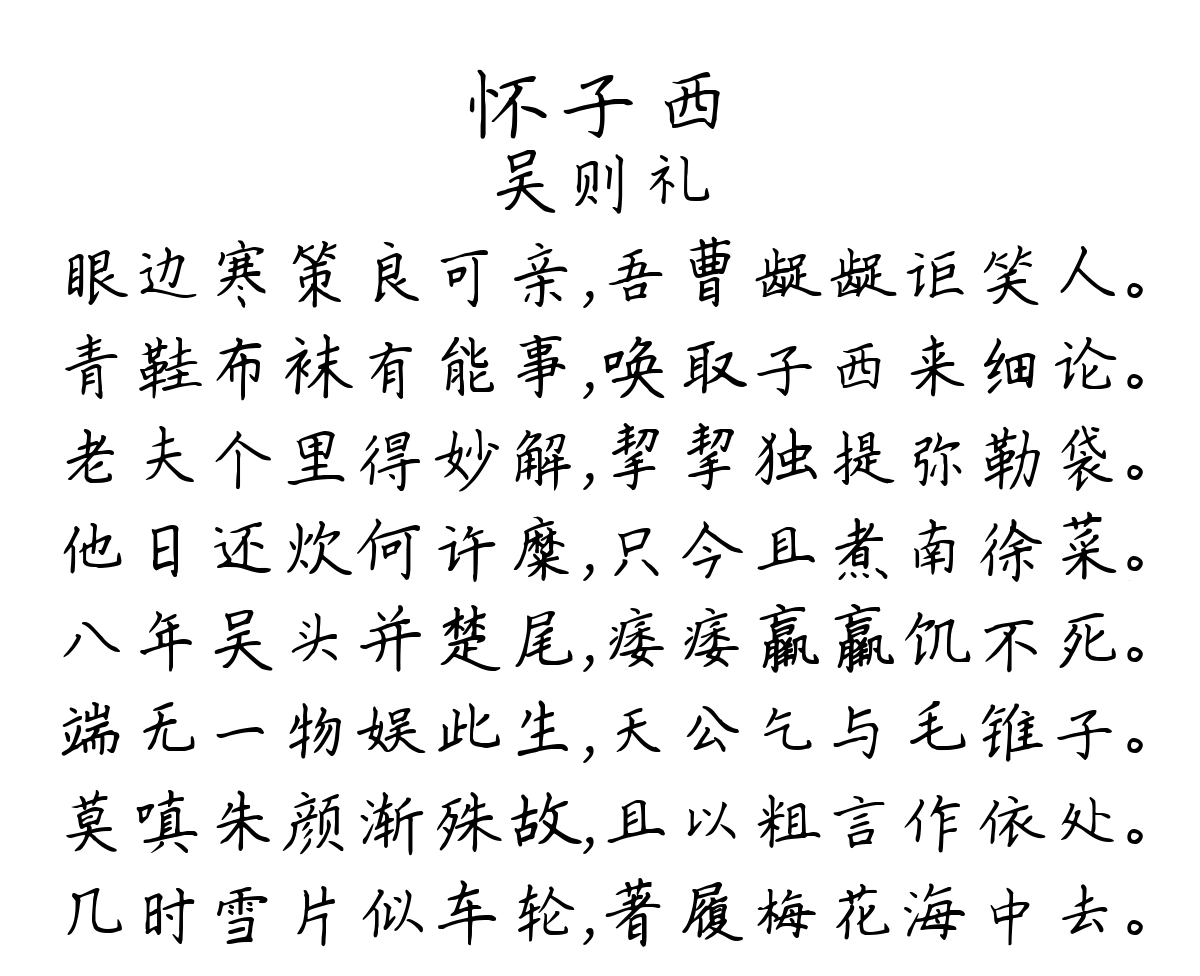 怀子西
吴则礼
眼边寒策良可亲,吾曹龊龊讵笑人。
青鞋布袜有能事,唤取子西来细论。
老夫个里得妙解,挈挈独提弥勒袋。
他日还炊何许糜,只今且煮南徐菜。
八年吴头并楚尾,痿痿羸羸饥不死。
端无一物娱此生,天公乞与毛锥子。
莫嗔朱颜渐殊故,且以粗言作依处。
几时雪片似车轮,著履梅花海中去。